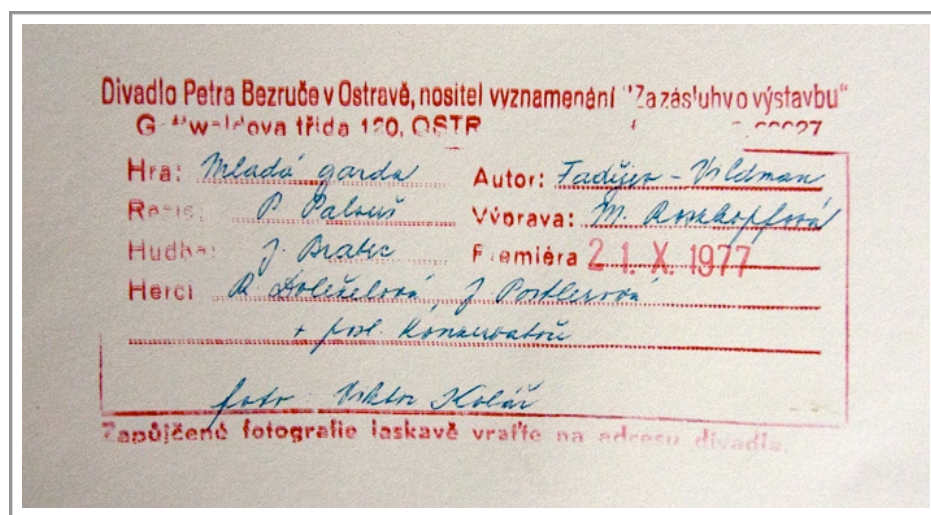 Divadlo Petra Bezruče v Ostravě, nositel vyznamenání "Za zásluhy o výstavbu"
třída 120,
Hra: Mladá garda Autor: Fadějev - Vildman
P. Palouš Výprava: M. Roszkopfová
Hudba: J. Bratec Premiéra 21. X. 1977
Herci R. Doleželová, J. Postlerová
+ posl. Konzervatoře
foto: Viktor Kolář
Zapůjčené fotografie laskavě vraťte na adresu divadla.